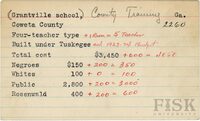 (Grantville school) County Training Ga.
Coweta County 2260
Four-teacher type + 1 Room = 5 Teacher
Built under Tuskegee and 1923-24 Budget
Total cost $3,450 + 600 =
Negroes $150 + 200 = 350
Whites 100 + 0 = 100
Public 2,800 + 200 = 3000
Rosenwald 400 + 200 = 600
FISK
UNIVERSITY